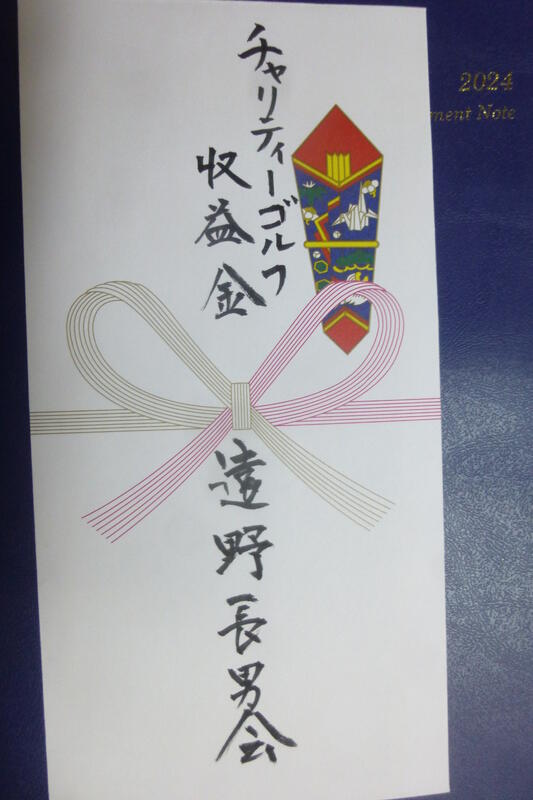 チャリティーゴルフ
収益金
遠野長男会
2024
ment Note